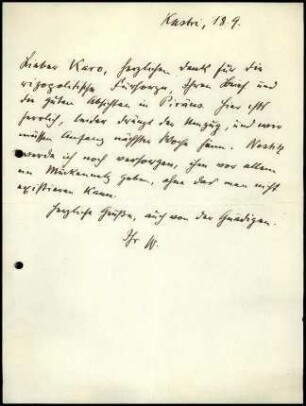 Kastri, 18.9.
Lieber Karo, herzlichen Dank für die
vizepolitische Fürsorge, Ihren Brief und
die guten Absichten in Piräus. Hier ists
herrlich, leider drängt der Umzug, und wir
müssen Anfang nächster Woche fann. Nostitz
werde ich noch versorgen, ihm vor allem
ein Mückennetz geben, ohne das man nicht
existieren kann.
Herzliche Grüße, auch von der Gnädigen.
Ihr W.